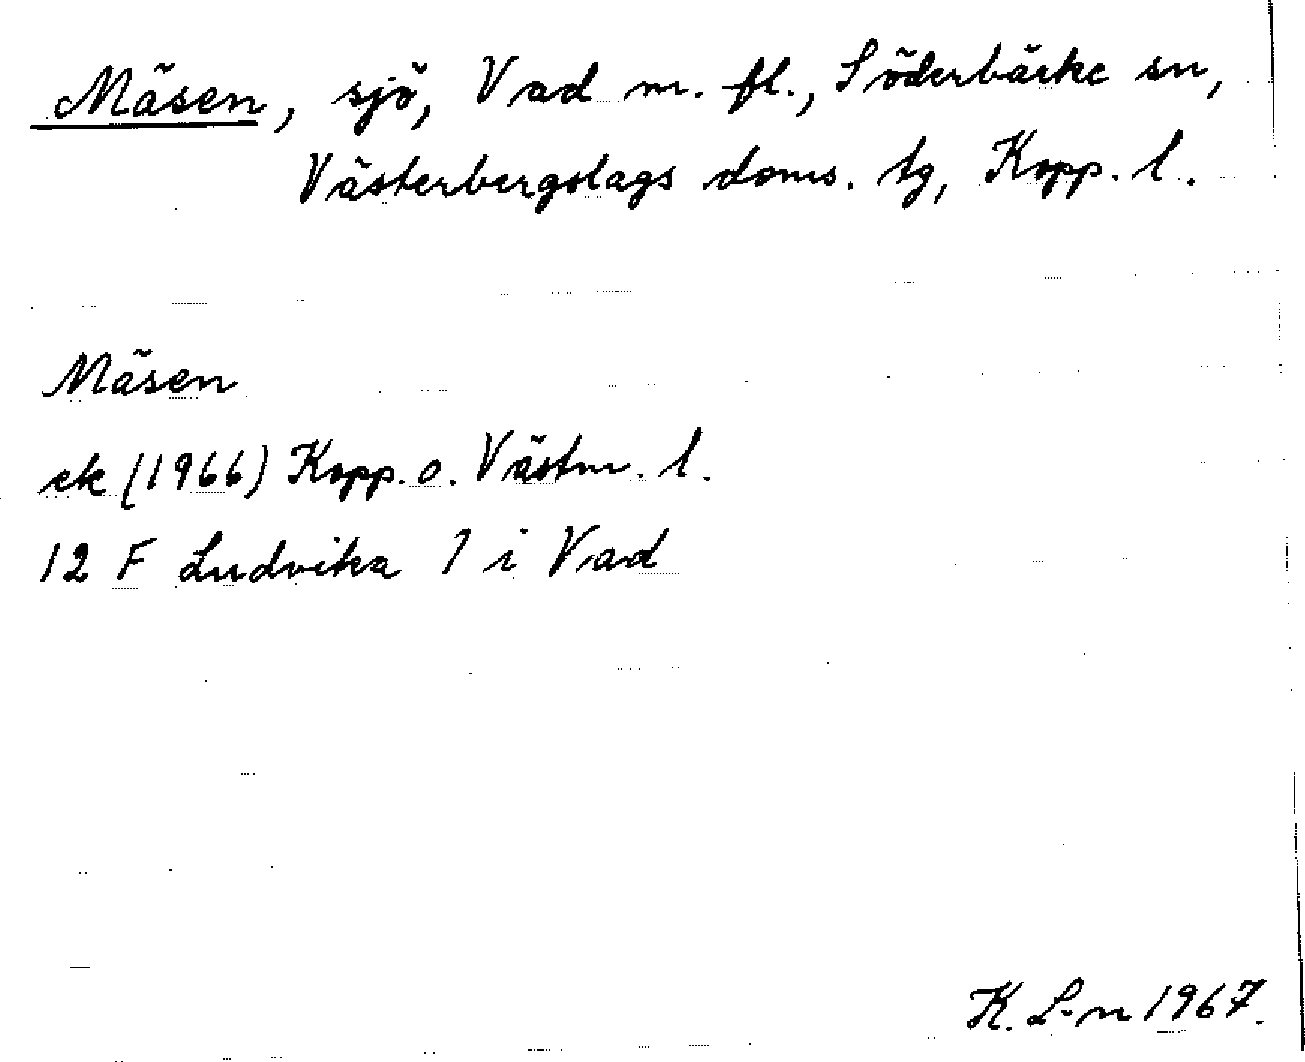 Mäsen, sjö, Vad m. fl., Söderbärke sn,
Västerbergslags doms. tg, Kopp. l.
Mäsen
ek (1966) Kopp. o. Västm. l.
12 F Ludvika 7 i Vad
K. L-n 1967.